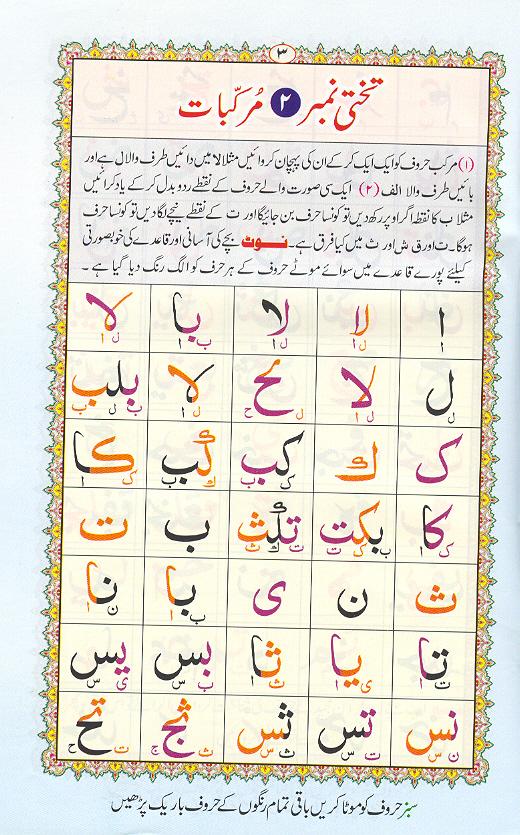 ۳
تختی نمبر ۲ مُرکّبات
(۱) مرکب حروف کو ایک ایک کر کے ان کی پہچان کروائیں مثلا لا میں دائیں طرف والا ل ہے اور
بائیں طرف والا الف (۲) ایک سی صورت والے حروف کے نقطے ردوبدل کر کے یاد کرائیں
مثلا ب کا نقطہ اگر اوپر رکھ دیں تو کونسا حرف بن جائیگا اور ت کے نقطے نیچے لگا دیں تو کونسا حرف
ہوگا۔ ت اور ق ش اور ث میں کیا فرق ہے۔ نوٹ بچے کی آسانی اور قاعدے کی خوبصورتی
کیلئے پورے قاعدے میں سوائے موٹے حروف کے ہر حرف کو الگ رنگ دیا گیا ہے ۔
ا لا لا با لا
ل لا لح لا بلب
ک ك کب كب کا
کا بکت تلث ب ت
ث ن ی با نا
تا یا ثا بس یس
نس تس ثس ثج تح
سبز حروف کو موٹا کریں باقی تمام رنگوں کے حروف باریک پڑھیں